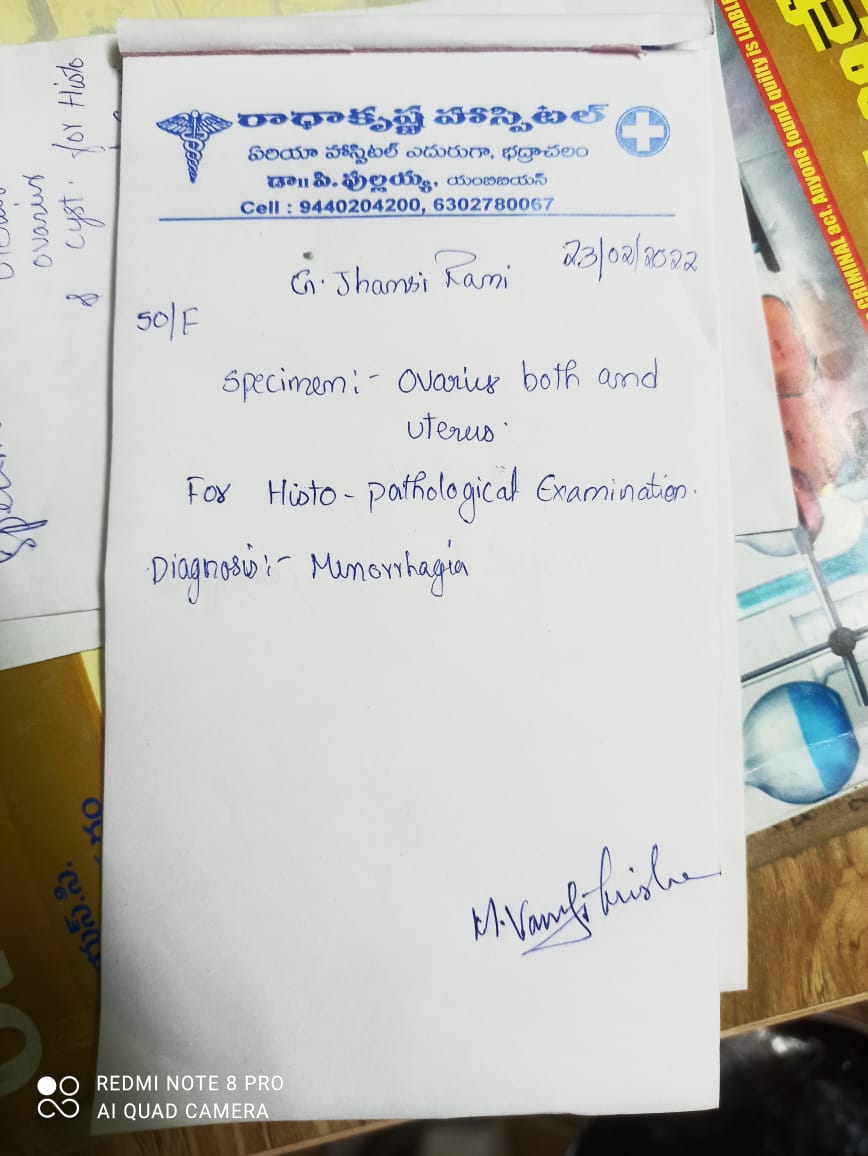 రాధాకృష్ణ హాస్పిటల్
ఏరియా హాస్పిటల్ ఎదురుగా, భద్రాచలం
డా॥ పి. పుల్లయ్య, యంబిబియస్
Cell : 9440204200, 6302780067
23/02/2022
G. Jhansi Rani
50/F
Specimen:- Ovaries both and
uterus.
For Histo-pathological Examination.
Diagnosis:- Menorrhagia
ovaries
& cyst. for Histo
CRIMINAL act. Anyone found guilty is LIABLE
REDMI NOTE 8 PRO
AI QUAD CAMERA